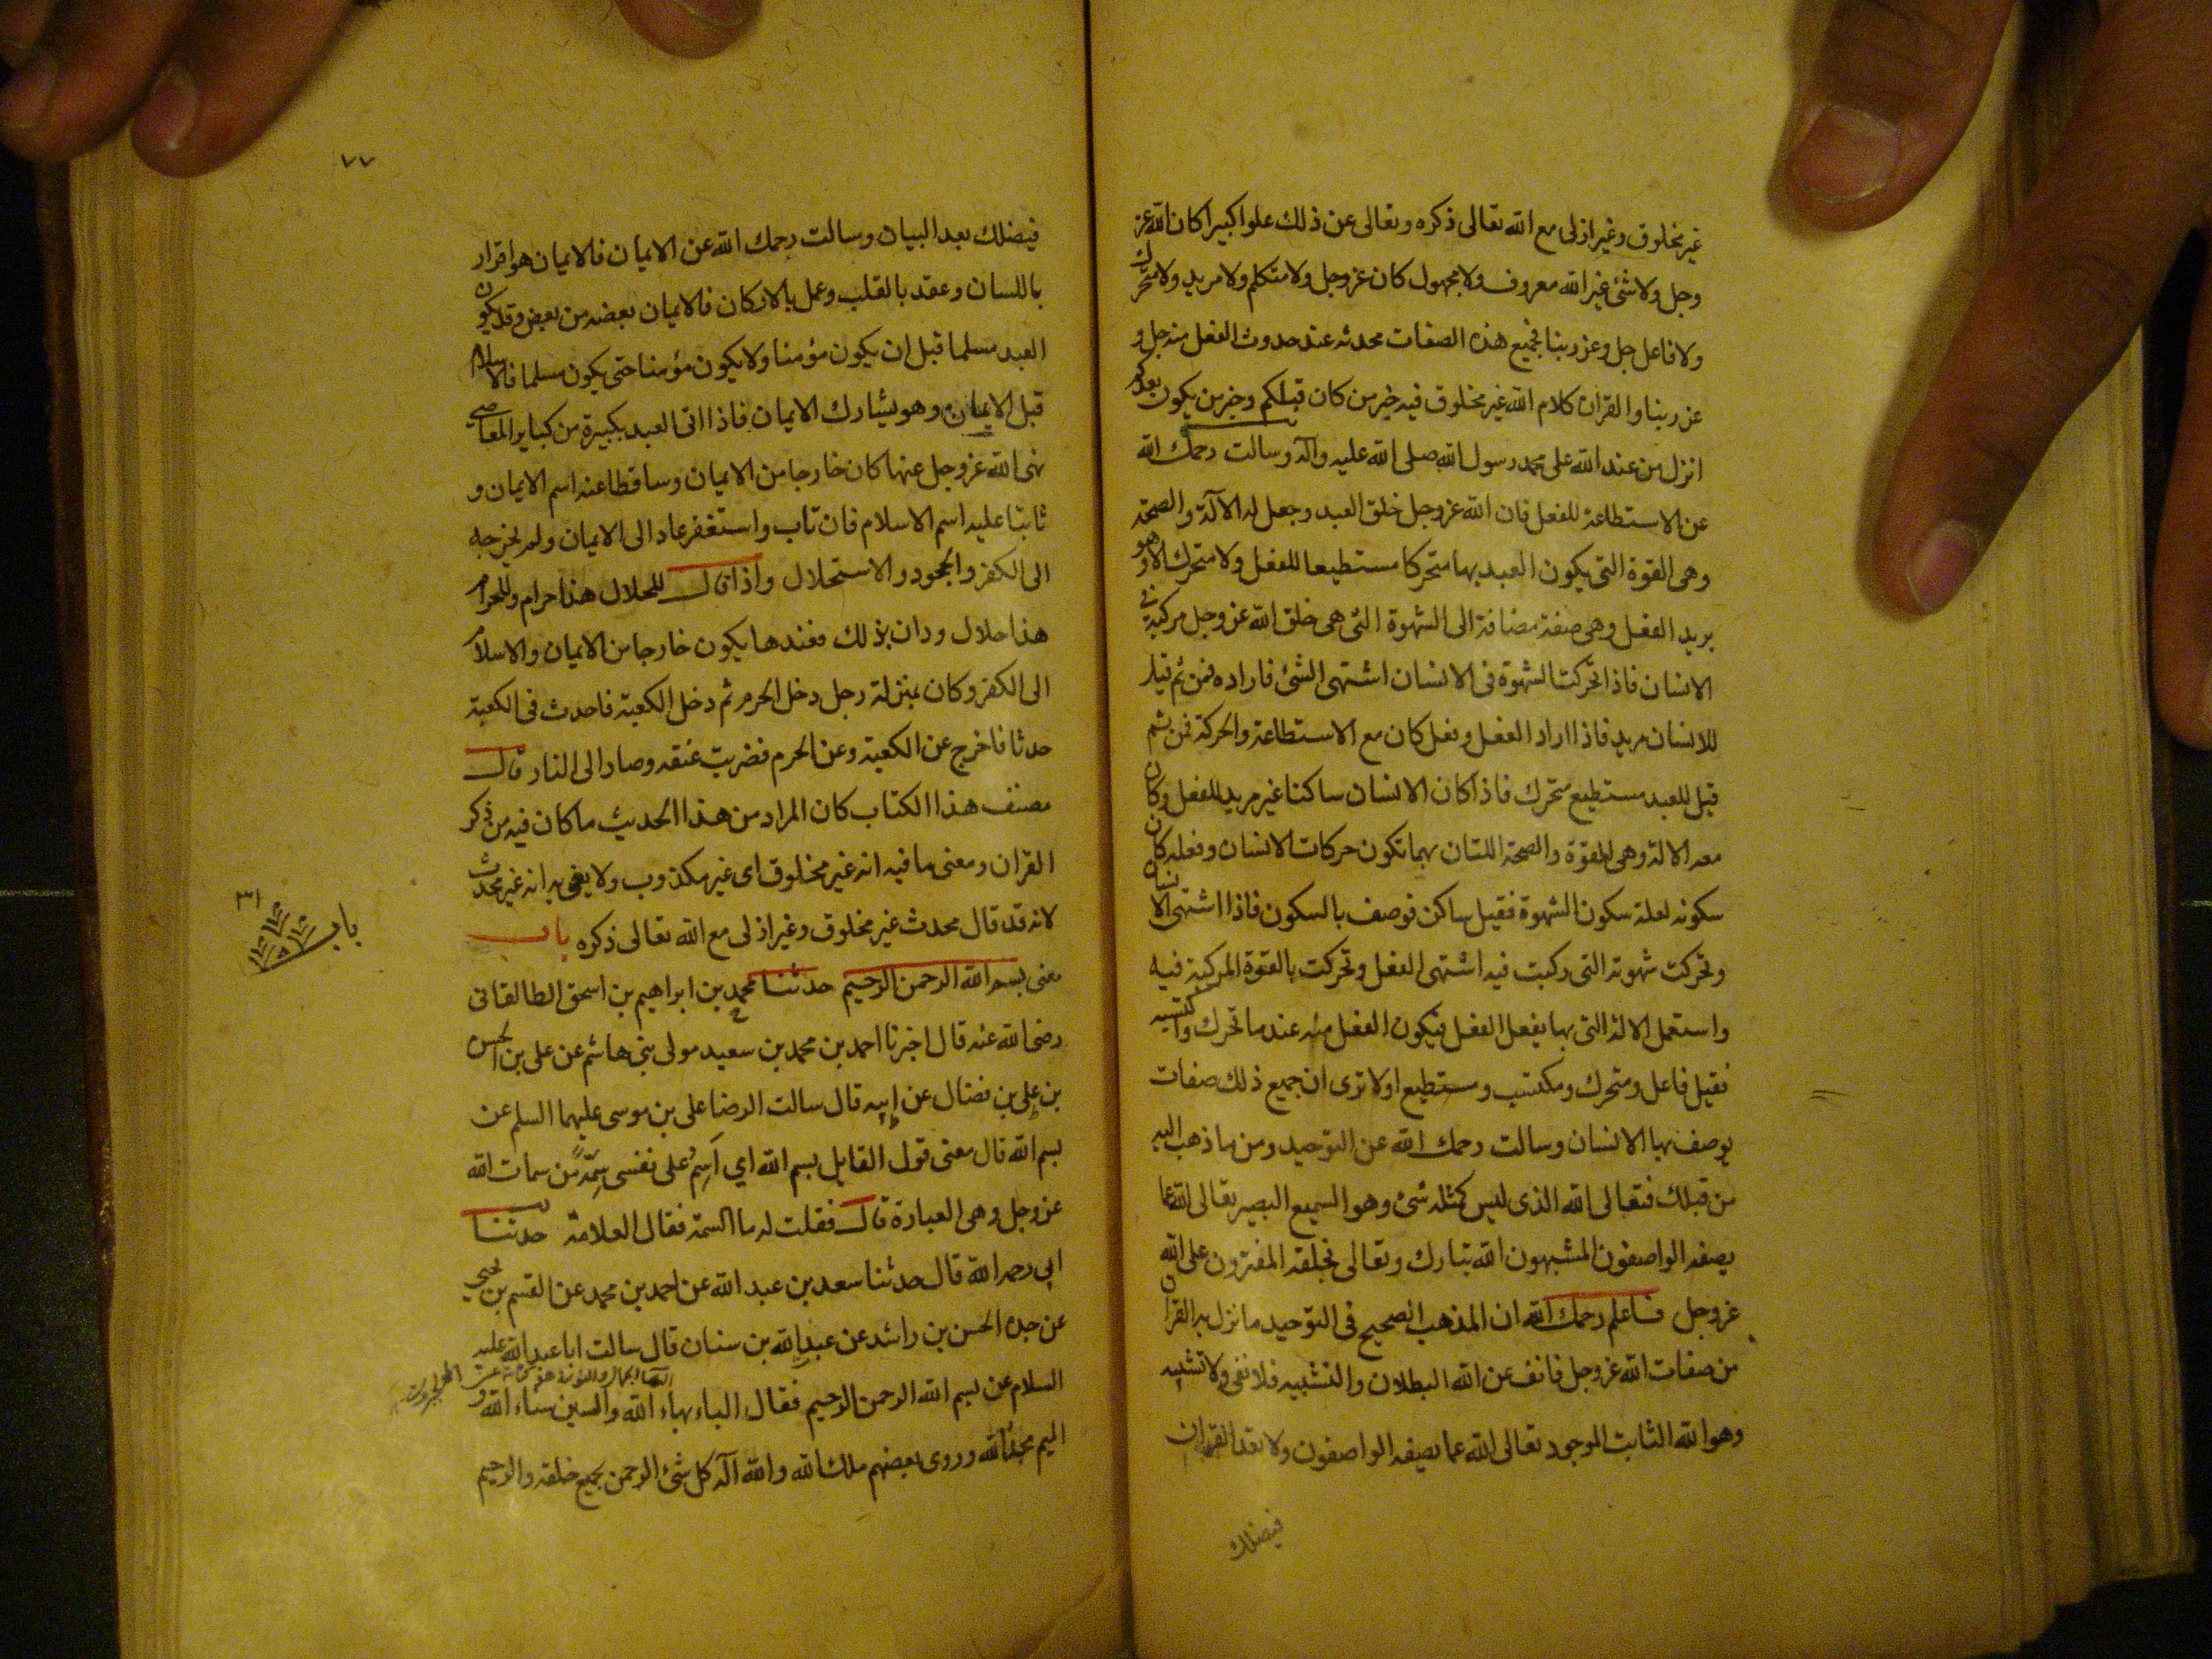 غير مخلوق وغير ازلى مع الله تعالى ذكره وتعالى عن ذلك علوا كبيرا كان الله عز
وجل ولا شئ غير الله معروف ولا مجهول كان عز وجل ولا متكلم ولا مريد ولا متحرك
ولا فاعل جل وعز ربنا فجميع هذه الصفات محدثه عند حدوث الفعل منه جل و
عز ربنا والقران كلام الله غير مخلوق فيه خبر من كان قبلكم وخبر من يكون بعدكم
انزل من عند الله على محمد رسول الله صلى الله عليه وآله وسالت رحمك الله
عن الاستطاعة للفعل فان الله عز وجل خلق العبد وجعل له الآلة والصحة
وهى القوة التى يكون العبد بها متحركا مستطيعا للفعل ولا متحرك الا وهو
يريد الفعل وهى صفة مضافة الى الشهوة التى هى خلق الله عز وجل مركبة فى
الانسان فاذا تحركت الشهوة فى الانسان اشتهى الشئ فاراده فمن ثم قيل
للانسان مريد فاذا اراد الفعل وفعل كان مع الاستطاعة والحركة فمن ثم
قيل للعبد مستطيع متحرك فاذا كان الانسان ساكنا غير مريد للفعل وكان
معه الالة وهى القوة والصحة اللتان بهما تكون حركات الانسان وفعله كان
سكونه لعلة سكون الشهوة فقيل ساكن فوصف بالسكون فاذا اشتهى الانسان
وتحركت شهوته التى ركبت فيه اشتهى الفعل وتحركت بالقوة المركبة فيه
واستعمل الالة التى بها يفعل الفعل فيكون الفعل منه عند ما تحرك واكتسبه
فقيل فاعل ومتحرك ومكتسب ومستطيع اولا ترى ان جميع ذلك صفات
يوصف بها الانسان وسالت رحمك الله عن التوحيد ومن ما ذهب اليه
من قبلك فتعالى الله الذى ليس كمثله شئ وهو السميع البصير تعالى الله عما
يصفه الواصفون المشبهون الله تبارك وتعالى بخلقه المفترون على الله
عز وجل فاعلم رحمك الله ان المذهب الصحيح فى التوحيد ما نزل به القران
من صفات الله عز وجل فانف عن الله البطلان والتشبيه فلا نفى ولا تشبيه
وهو الله الثابت الموجود تعالى الله عما يصفه الواصفون ولا تعد القران
فيضلك
٧٧
فيضلك بعد البيان وسالت رحمك الله عن الايمان فالايمان هو اقرار
باللسان وعقد بالقلب وعمل بالاركان فالايمان بعضه من بعض وقد يكون
العبد مسلما قبل ان يكون مؤمنا ولا يكون مؤمنا حتى يكون مسلما فالاسلام
قبل الايمان وهو يشارك الايمان فاذا اتى العبد بكبيرة من كباير المعاصى
نهى الله عز وجل عنها كان خارجا من الايمان وساقطا عنه اسم الايمان و
ثابتا عليه اسم الاسلام فان تاب واستغفر عاد الى الايمان ولم يخرجه
الى الكفر والجحود والاستحلال واذا قال للحلال هذا حرام وللحرام
هذا حلال ودان بذلك فعندها يكون خارجا من الايمان والاسلام
الى الكفر وكان بمنزلة رجل دخل الحرم ثم دخل الكعبة فاحدث فى الكعبة
حدثا فاخرج عن الكعبة وعن الحرم فضربت عنقه وصار الى النار قال
مصنف هذا الكتاب كان المراد من هذا الحديث ما كان فيه من ذكر
القران ومعنى ما فيه انه غير مخلوق اى غير مكذوب ولا يعنى به انه غير محدث
لانه قد قال محدث غير مخلوق وغير ازلى مع الله تعالى ذكره باب
باب ٣١
معنى بسم الله الرحمن الرحيم حدثنا محمد بن ابراهيم بن اسحق الطالقانى
رضى الله عنه قال اخبرنا احمد بن محمد بن سعيد مولى بنى هاشم عن على بن الحسن
بن على بن فضال عن ابيه قال سالت الرضا على بن موسى عليهما السلم عن
بسم الله قال معنى قول القايل بسم الله اي اسم على نفسى سمة من سمات الله
عز وجل وهى العبادة قال فقلت له ما السمة فقال العلامة حدثنا
ابي رحمه الله قال حدثنا سعد بن عبد الله عن احمد بن محمد عن القسم بن يحيى
عن جده الحسن بن راشد عن عبد الله بن سنان قال سالت ابا عبد الله عليه
السلام عن بسم الله الرحمن الرحيم فقال الباء بهاء الله والسين سناء الله و
الميم مجد الله وروى بعضهم ملك الله والله اله كل شئ الرحمن بجميع خلقه والرحيم